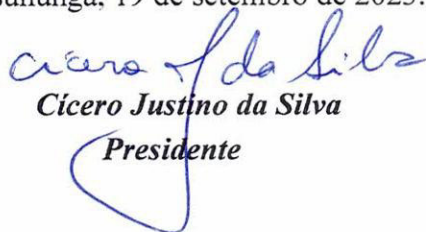 19 de setembro de 2023.
Cícero J da Silva
Cícero Justino da Silva
Presidente